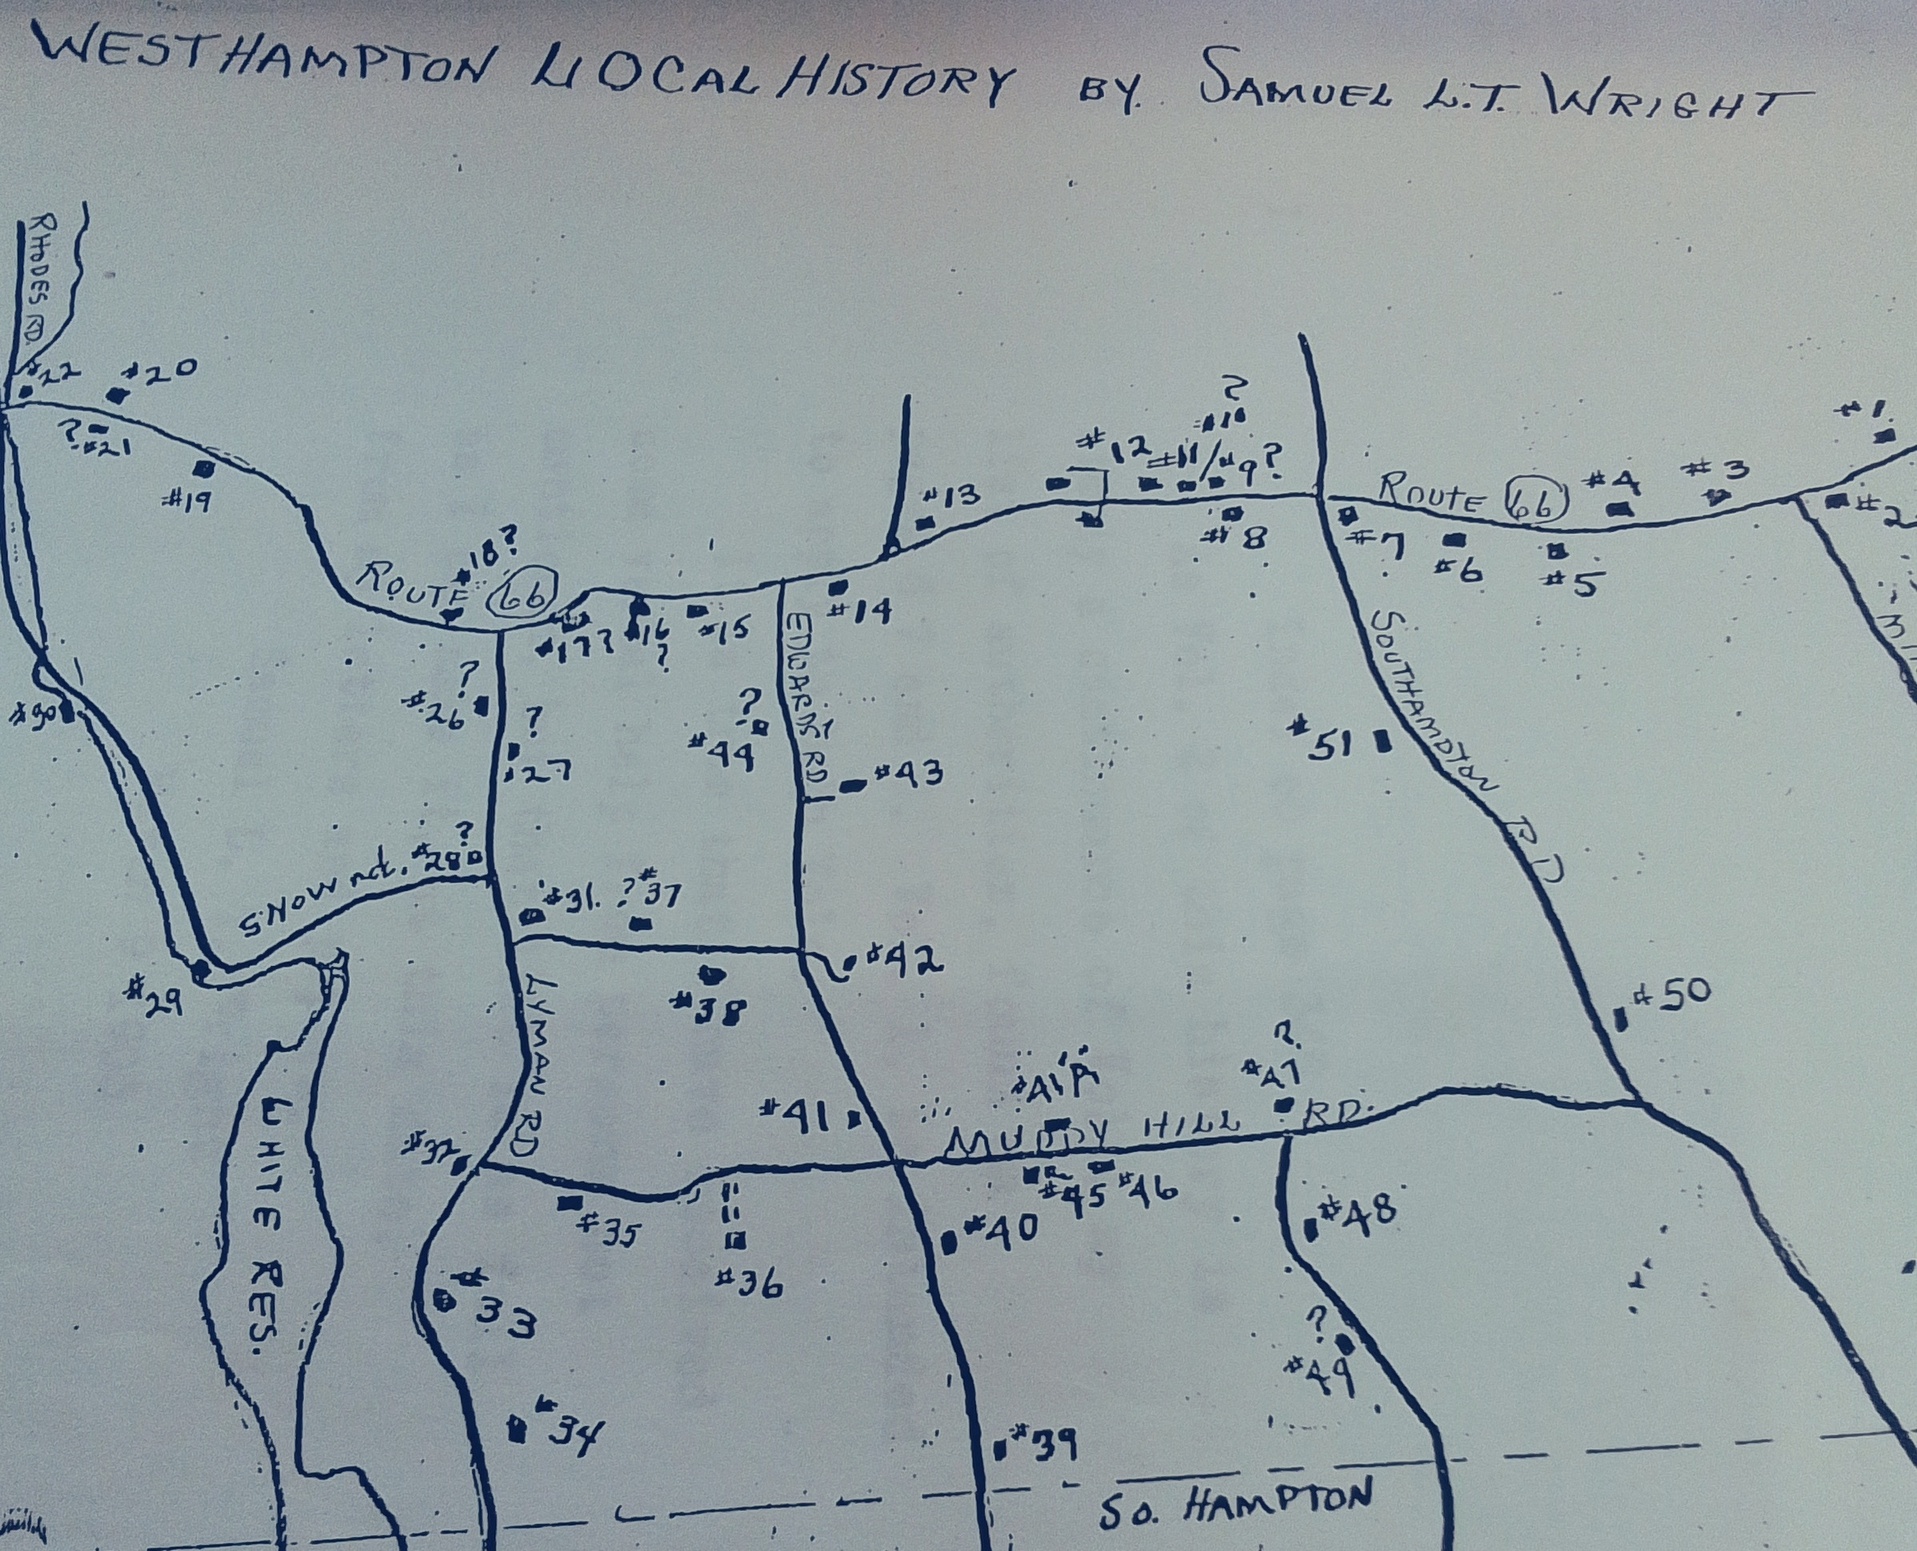 WESTHAMPTON LOCAL HISTORY BY. SAMUEL L.T. WRIGHT
RHODES RD.
#22
#20
? #21
#19
ROUTE 66
#18?
#17?
#16 ?
#15
#14
#13
#12
#11
? #10
#9?
#8
ROUTE 66
#7
#6
#5
#4
#3
#1.
#2
EDWARDS RD
SOUTHAMPTON RD
? #26
? #27
#30
? #44
#43
#51
SNOW rd.
? #28
#31.
? #37
#29
#38
#42
LYMAN RD
#50
WHITE RES.
#32
#41
#41A
? #47
MUDDY HILL RD.
#35
#36
#45
#46
#40
#48
#33
#34
? #49
#39
SO. HAMPTON